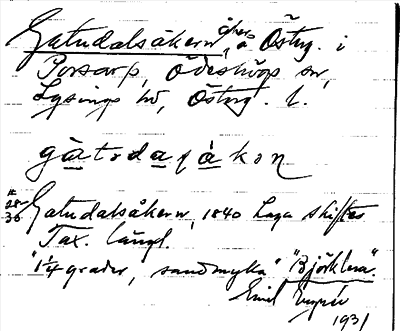 Gatudalsåkern, åker å Östrg. i
Porsarp, Ödeshögs sn,
Lysings hd, Östrg. l.
gatodasåkon
Gatudalsåkern, 1840 Laga skiftes
Tax. längd.
"1¼ grader, sandmylla" "Björklera".
Emil
1931